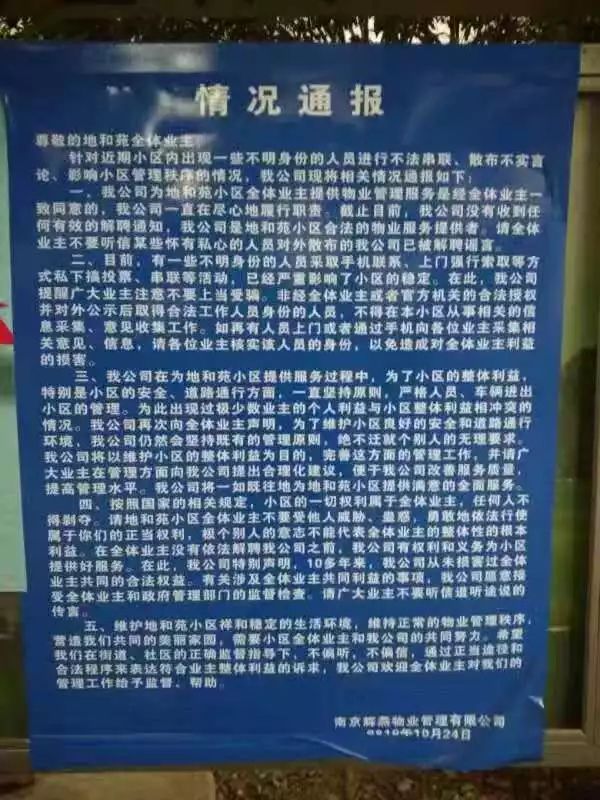 情况通报
尊敬的地和苑全体业主：
针对近期小区内出现一些不明身份的人员进行不法串联、散布不实言
论、影响小区管理秩序的情况，我公司现将相关情况通报如下：
一、我公司为地和苑小区全体业主提供物业管理服务是经全体业主一
致同意的，我公司一直在尽心地履行职责。截止目前，我公司没有收到任
何有效的解聘通知，我公司是地和苑小区合法的物业服务提供者。请全体
业主不要听信某些怀有私心的人员对外散布的我公司已被解聘谣言。
二、目前，有一些不明身份的人员采取手机联系、上门强行索取等方
式私下搞投票、串联等活动，已经严重影响了小区的稳定。在此，我公司
提醒广大业主注意不要上当受骗。非经全体业主或者官方机关的合法授权
并对外公示后取得合法工作人员身份的人员，不得在本小区从事相关的信
息采集、意见收集工作。如再有人员上门或者通过手机向各位业主采集相
关意见、信息，请各位业主核实该人员的身份，以免造成对全体业主利益
的损害。
三、我公司在为地和苑小区提供服务过程中，为了小区的整体利益，
特别是小区的安全、道路通行方面，一直坚持原则，严格人员、车辆进出
小区的管理。为此出现过极少数业主的个人利益与小区整体利益相冲突的
情况。我公司再次向全体业主声明，为了维护小区良好的安全和道路通行
环境，我公司仍然会坚持既有的管理原则，绝不迁就个别人的无理要求。
我公司将以维护小区的整体利益为目的，完善这方面的管理工作，并请广
大业主在管理方面向我公司提出合理化建议，便于我公司改善服务质量，
提高管理水平。我公司将一如既往地为地和苑小区提供满意的全面服务。
四、按照国家的相关规定，小区的一切权利属于全体业主，任何人不
得剥夺。请地和苑小区全体业主不要受他人威胁、蛊惑，勇敢地依法行使
属于你们的正当权利，极个别人的意志不能代表全体业主的整体性的根本
利益。在全体业主没有依法解聘我公司之前，我公司有权利和义务为小区
提供好服务。在此，我公司特别声明，10多年来，我公司从未损害过全体
业主共同的合法权益。有关涉及全体业主共同利益的事项，我公司愿意接
受全体业主和政府管理部门的监督检查。请广大业主不要听信道听途说的
传言。
五、维护地和苑小区祥和稳定的生活环境，维持正常的物业管理秩序，
营造我们共同的美丽家园，需要小区全体业主和我公司的共同努力。希望
我们在街道、社区的正确监督指导下，不偏听、不偏信，通过正当途径和
合法程序来表达符合业主整体利益的诉求，我公司欢迎全体业主对我们的
管理工作给予监督、帮助。
南京辉燕物业管理有限公司
年10月24日